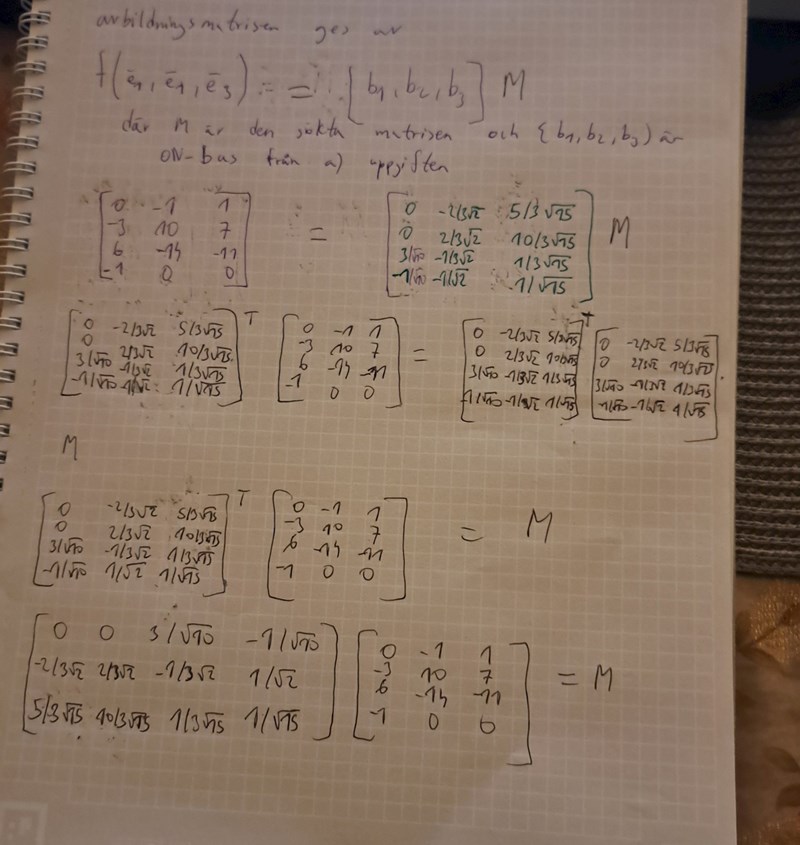 avbildningsmatrisen ges av
f(ē1, ē1, ē3) = [b1, b2, b3] M
där M är den sökta matrisen och {b1, b2, b3) är
ON-bas från a) uppgiften
[0 -1 1; -3 10 7; 6 -14 -11; -1 0 0] = [0 -2/3√2 5/3√15; 0 2/3√2 10/3√15; 3/√10 -1/3√2 1/3√15; -1/√10 -1/√2 1/√15] M
[0 -2/3√2 5/3√15; 0 2/3√2 10/3√15; 3/√10 -1/3√2 1/3√15; -1/√10 -1/√2 1/√15]T [0 -1 1; -3 10 7; 6 -14 -11; -1 0 0] = [0 -2/3√2 5/3√15; 0 2/3√2 10/3√15; 3/√10 -1/3√2 1/3√15; -1/√10 -1/√2 1/√15]T [0 -2/3√2 5/3√15; 0 2/3√2 10/3√15; 3/√10 -1/3√2 1/3√15; -1/√10 -1/√2 1/√15].
M
[0 -2/3√2 5/3√15; 0 2/3√2 10/3√15; 3/√10 -1/3√2 1/3√15; -1/√10 1/√2 1/√15]T [0 -1 1; -3 10 7; 6 -14 -11; -1 0 0] = M
[0 0 3/√10 -1/√10; -2/3√2 2/3√2 -1/3√2 1/√2; 5/3√15 10/3√15 1/3√15 1/√15] [0 -1 1; -3 10 7; 6 -14 -11; -1 0 0] = M